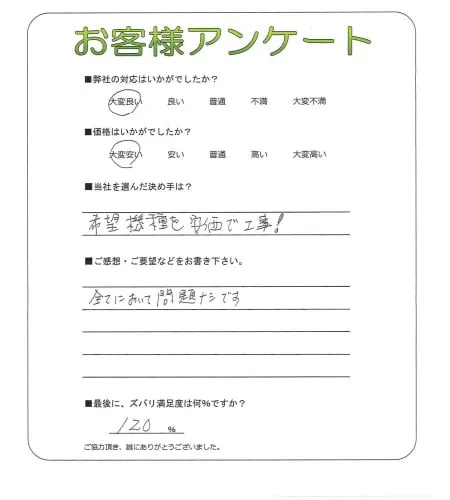 お客様アンケート
■弊社の対応はいかがでしたか？
大変良い 良い 普通 不満 大変不満
■価格はいかがでしたか？
大変安い 安い 普通 高い 大変高い
■当社を選んだ決め手は？
希望機種を安価で工事！
■ご感想・ご要望などをお書き下さい。
全てにおいて問題ナシです
■最後に、ズバリ満足度は何％ですか？
120 ％
ご協力頂き、誠にありがとうございました。